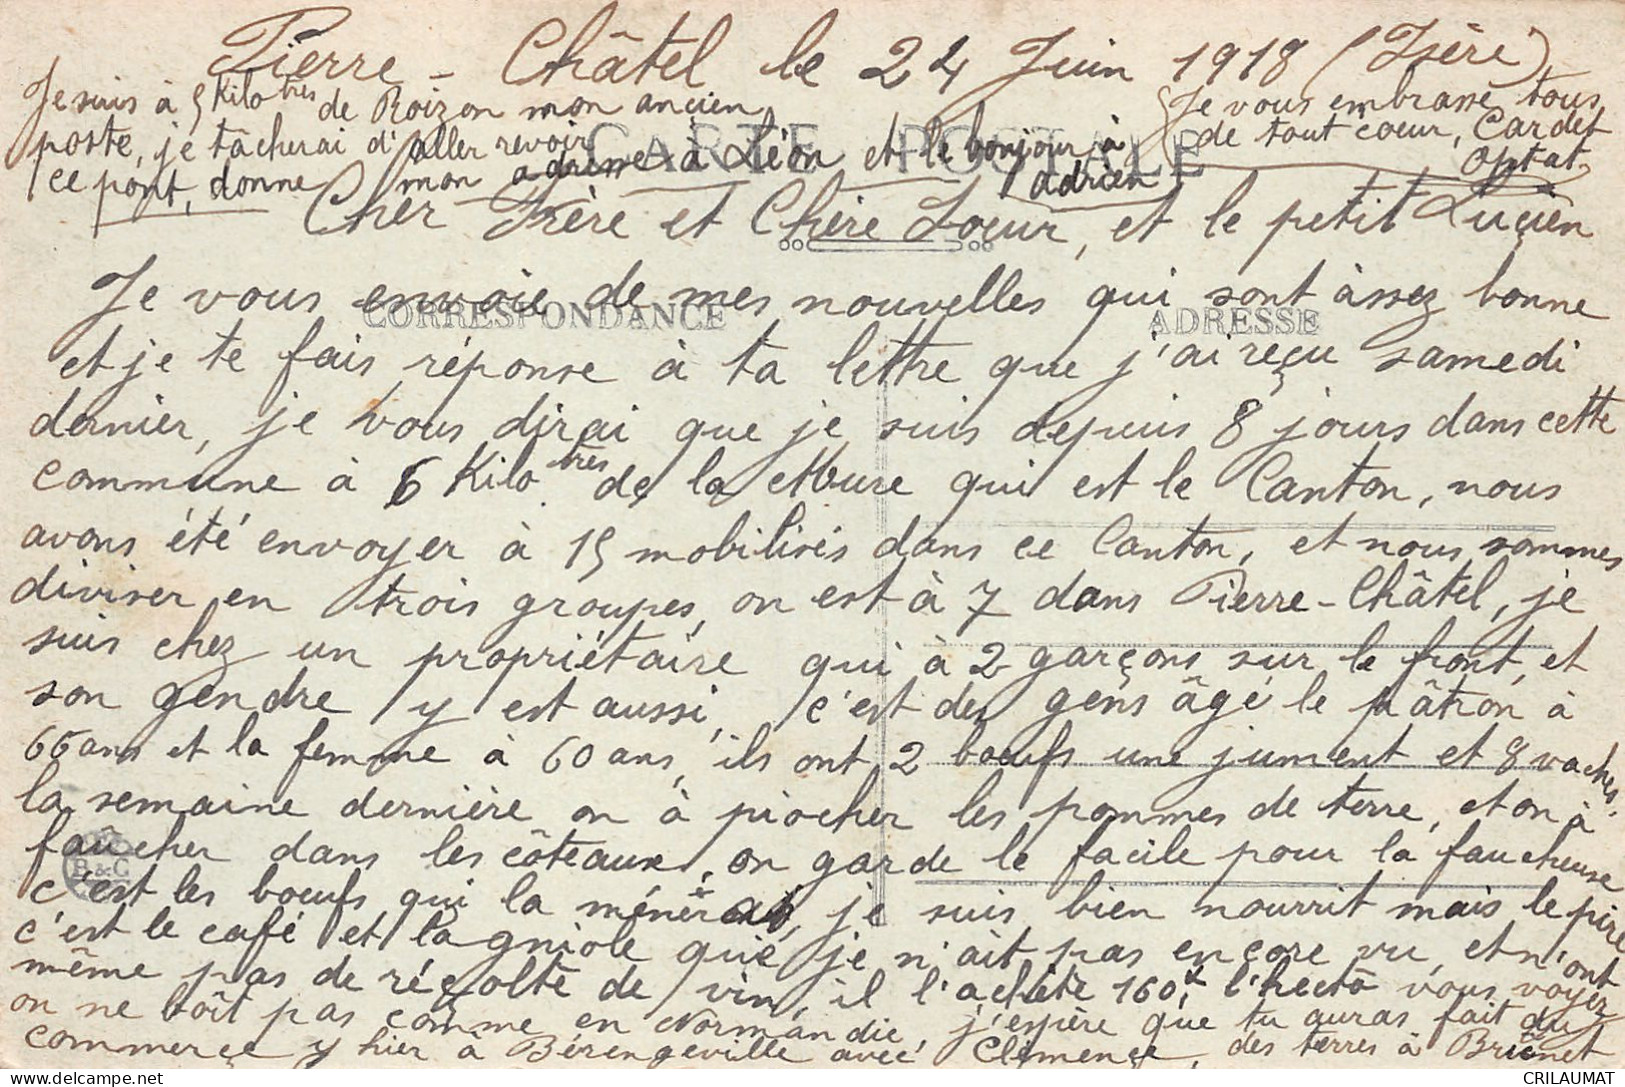 Pierre - Châtel le 24 Juin 1918 (Isère)
Je suis à 5 Kilotres de Roizon mon ancien
poste, je tâcherai d'aller revoir
ce pont, donne mon adresse à Léon et le bonjour à
adrien
Je vous embrasse tous
de tout coeur, Cardet
Optat
CARTE POSTALE
Cher Frère et Chère Soeur, et le petit Lucien
Je vous envoie de mes nouvelles qui sont assez bonne
CORRESPONDANCE
ADRESSE
et je te fais réponse à ta lettre que j'ai reçu samedi
dernier, je vous dirai que je suis depuis 8 jours dans cette
commune à 6 Kilo.tres de la Mure qui est le Canton, nous
avons été envoyer à 15 mobilisés dans ce Canton, et nous sommes
diviser en trois groupes, on est à 7 dans Pierre-Châtel, je
suis chez un propriétaire qui à 2 garçons sur le front, et
son gendre y est aussi, c'est des gens âgé le pâtron à
66 ans et la femme à 60 ans, ils ont 2 boeufs une jument et 8 vaches.
la semaine dernière on à piocher les pommes de terre, et on à
faûcher dans les côteaux, on garde le facile pour la faucheuse
B & C
c'est les boeufs qui la mène, je suis bien nourrit mais le pire
c'est le café et la gniole que je n'ait pas encore vu, et n'ont
même pas de récolte de vin, il l'achète 160f l'hecto vous voyez
on ne boît pas comme en Normandie, j'espère que tu auras fait du
commerce y hier à Bérengeville avec Clémence, des terres à Brionet
CRILAUMAT